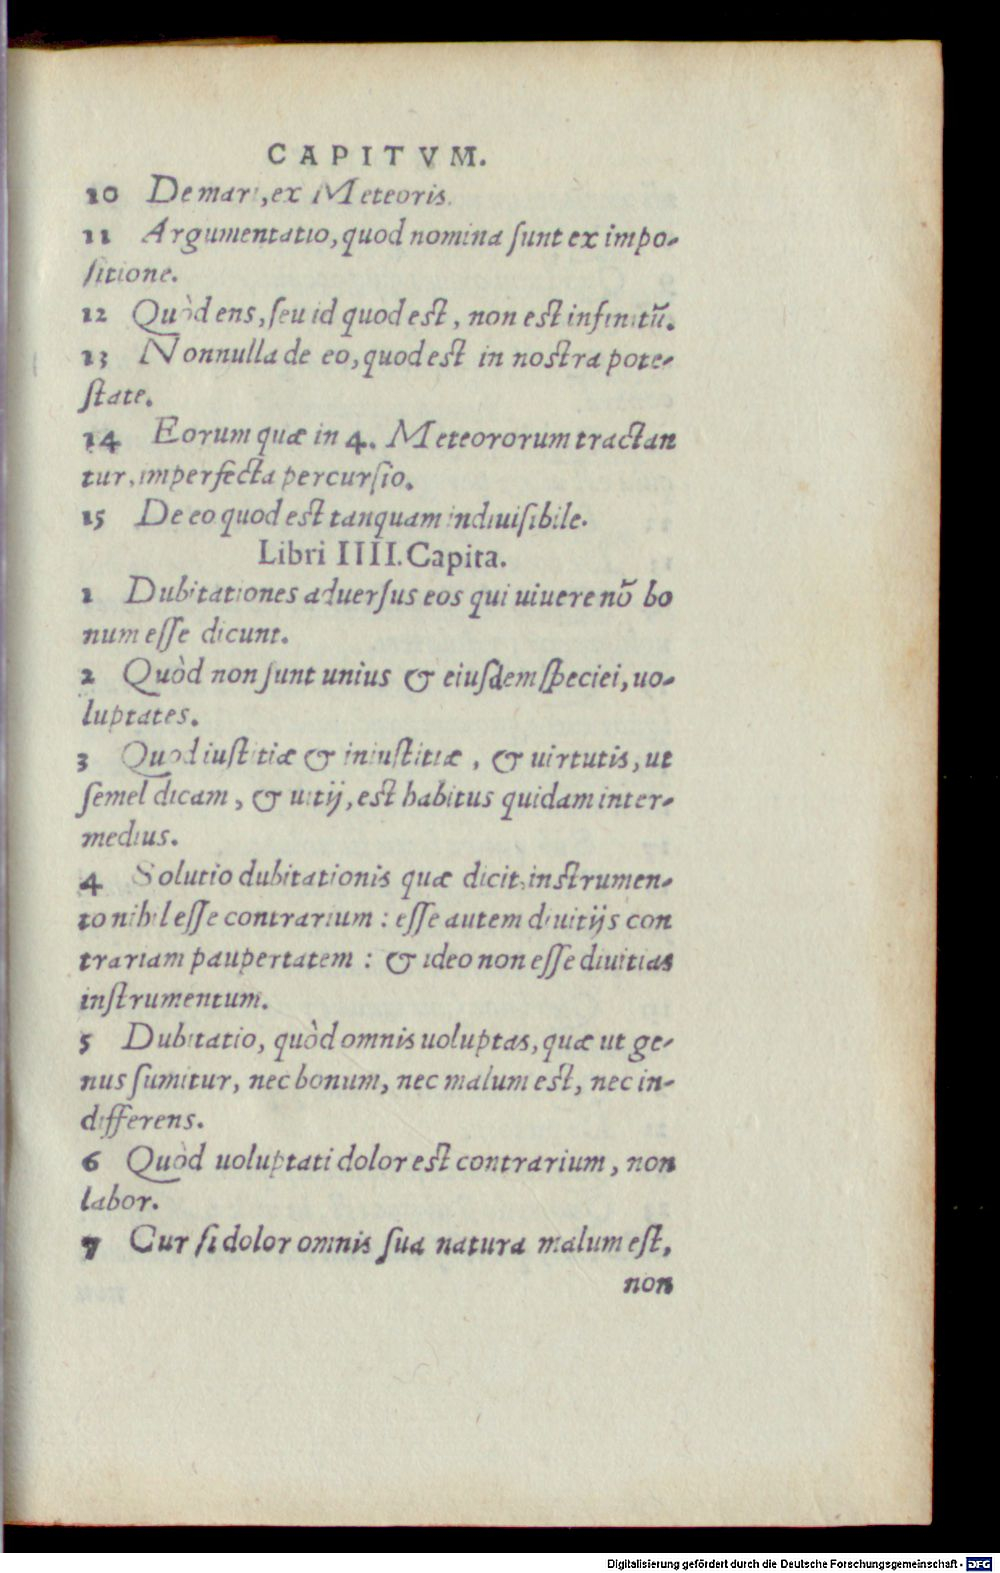 CAPITVM.
10 De mari, ex Meteoris.
11 Argumentatio, quod nomina ſunt ex impo-
ſitione.
12 Quòd ens, ſeu id quod eſt, non eſt infinitū.
13 Nonnulla de eo, quod eſt in noſtra pote-
ſtate.
14 Eorum quæ in 4. Meteororum tractan
tur, imperfecta percurſio.
15 De eo quod eſt tanquam indiuiſibile.
Libri IIII. Capita.
1 Dubitationes aduerſus eos qui uiuere nō bo
num eſſe dicunt.
2 Quòd non ſunt unius & eiuſdem ſpeciei, uo-
luptates.
3 Quod iuſtitiæ & iniuſtitiæ, & uirtutis, ut
ſemel dicam, & uitij, eſt habitus quidam inter-
medius.
4 Solutio dubitationis quæ dicit, inſtrumen-
to nihil eſſe contrarium: eſſe autem diuitijs con
trariam paupertatem: & ideo non eſſe diuitias
inſtrumentum.
5 Dubitatio, quòd omnis uoluptas, quæ ut ge-
nus ſumitur, nec bonum, nec malum eſt, nec in-
differens.
6 Quòd uoluptati dolor eſt contrarium, non
labor.
7 Cur ſi dolor omnis ſua natura malum eſt,
non
Digitalisierung gefördert durch die Deutsche Forschungsgemeinschaft - DFG